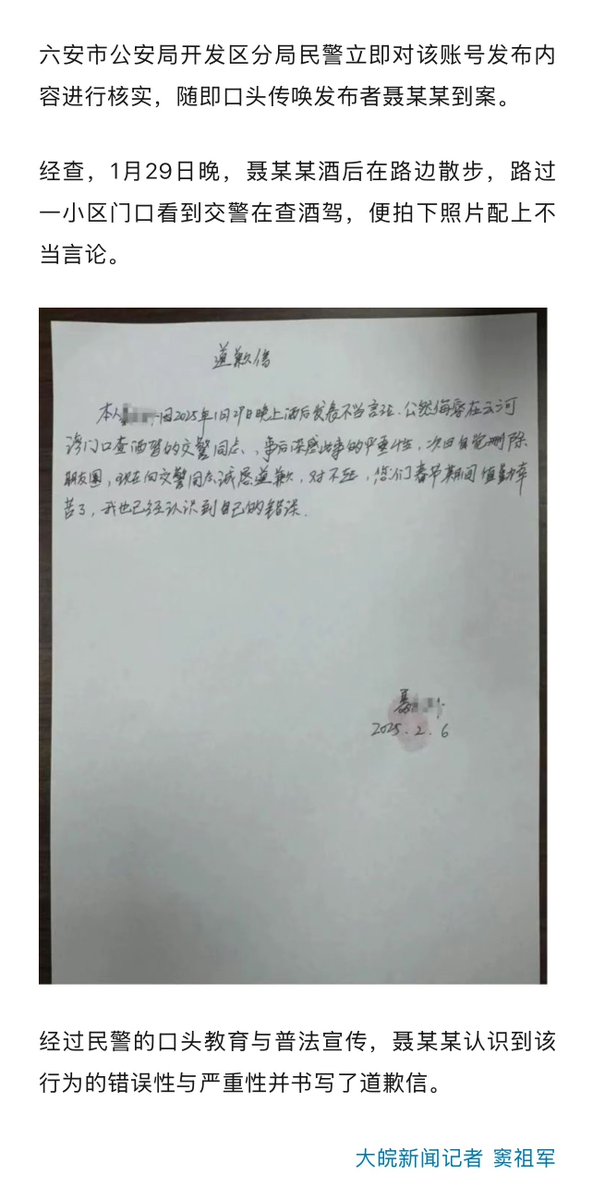 六安市公安局开发区分局民警立即对该账号发布内
容进行核实，随即口头传唤发布者聂某某到案。
经查，1月29日晚，聂某某酒后在路边散步，路过
一小区门口看到交警在查酒驾，便拍下照片配上不
当言论。
道歉信
本人 因2025年1月29日晚上酒后发表不当言论.公然侮辱在
门口查酒驾的交警同志、事后深感此事的严重性，次日自觉删除
朋友圈，现在向交警同志诚恳道歉，对不起，您们春节期间值勤辛
苦了，我也已经认识到自己的错误.
聂
2025.2.6
经过民警的口头教育与普法宣传，聂某某认识到该
行为的错误性与严重性并书写了道歉信。
大皖新闻记者 窦祖军